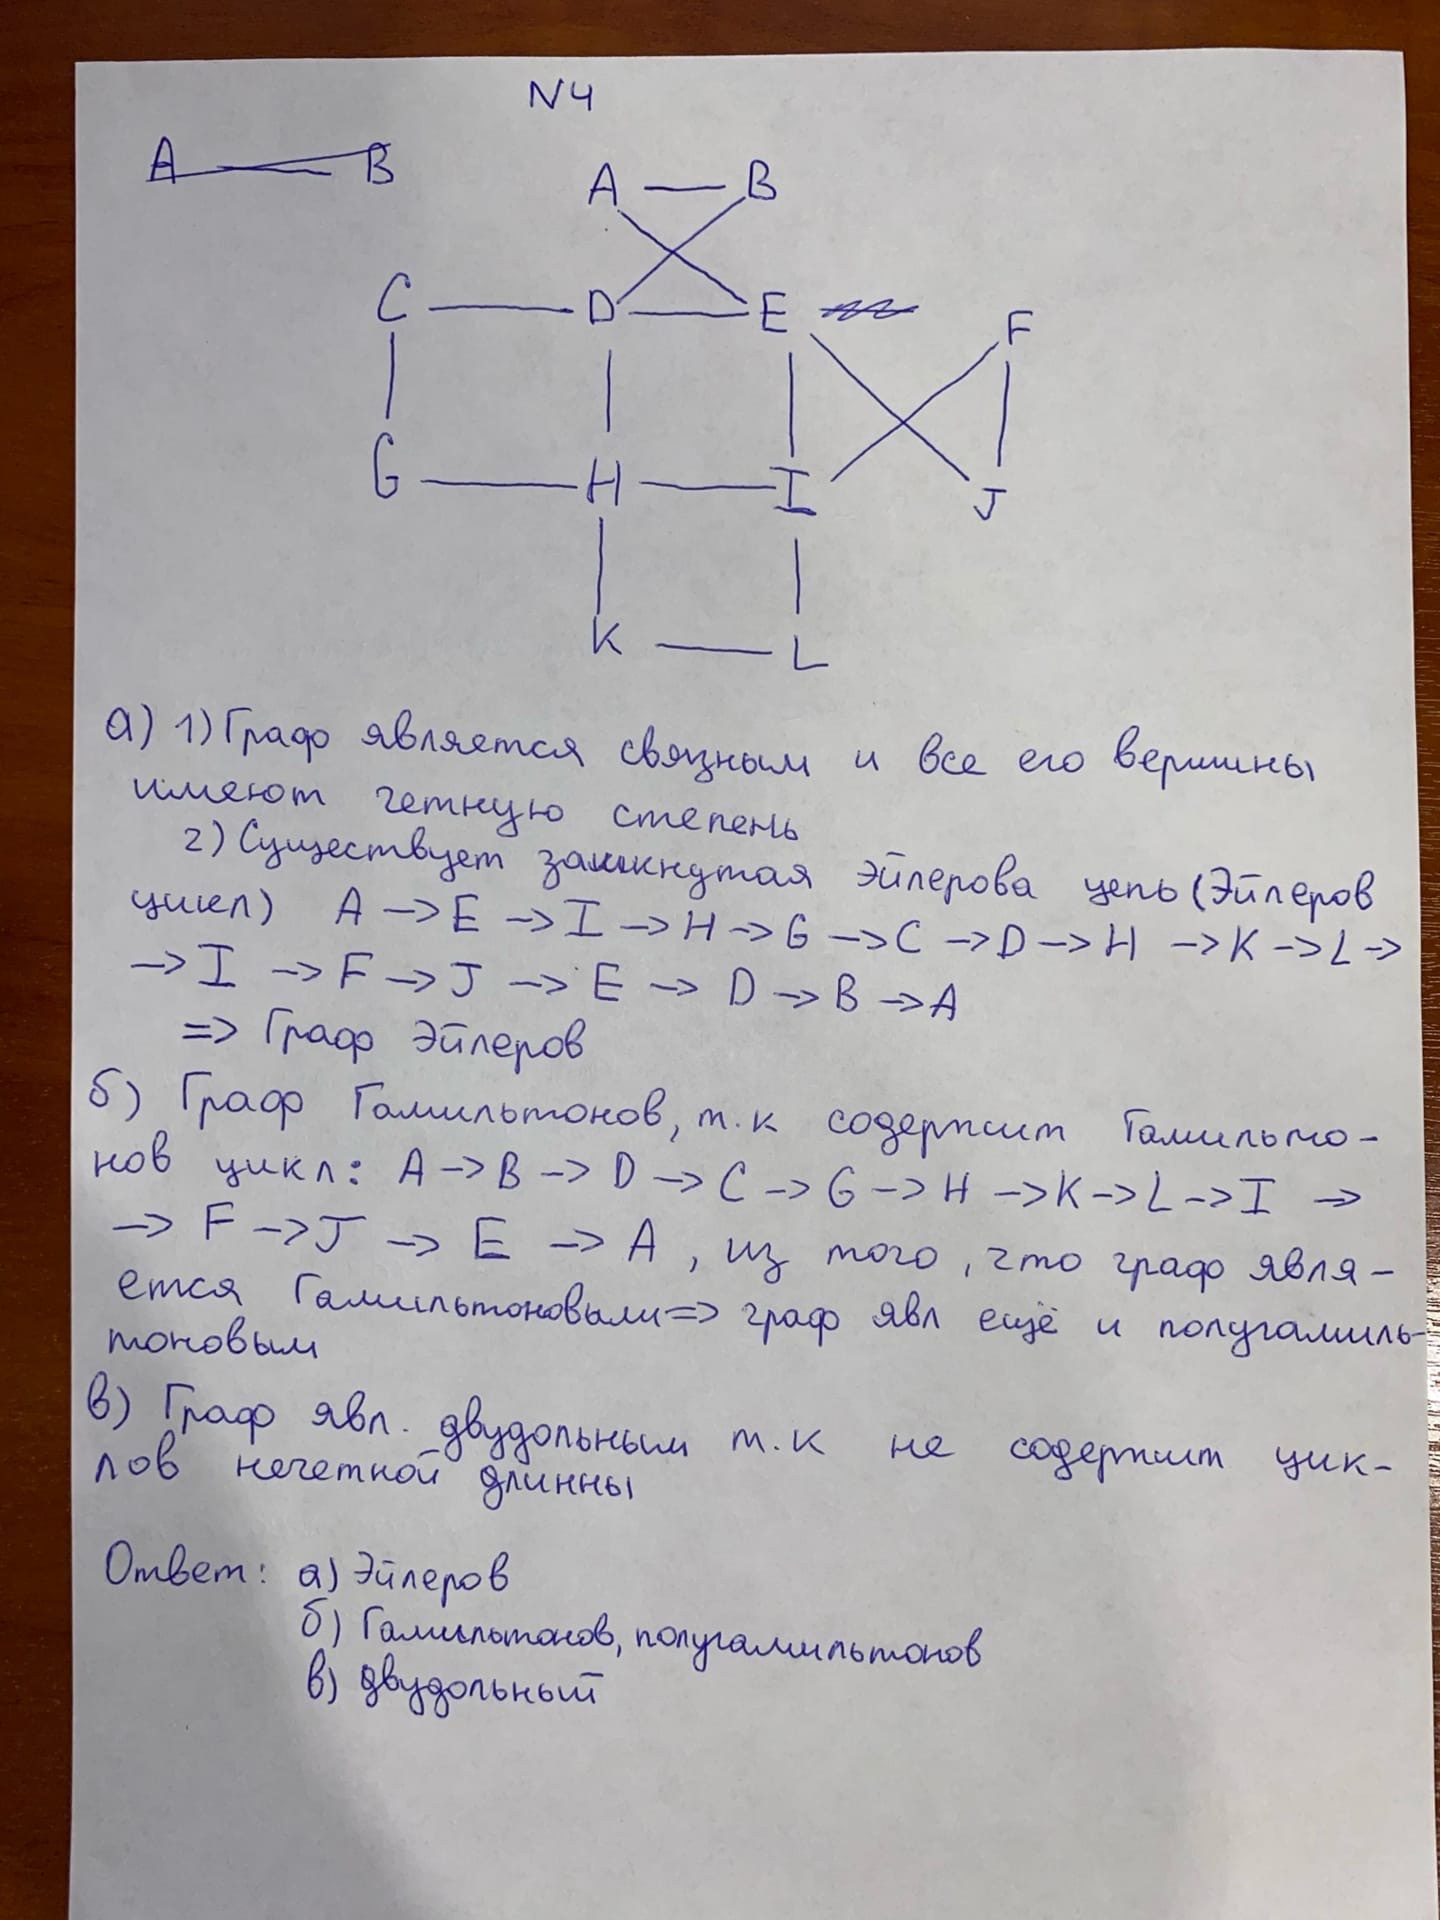 N4
A B
A B
C D E F
G H I J
K L
а) 1) Граф является связным и все его вершины
имеют четную степень
2) Существует замкнутая Эйлерова цепь (Эйлеров
цикл) A -> E -> I -> H -> G -> C -> D -> H -> K -> L ->
-> I -> F -> J -> E -> D -> B -> A
=> Граф Эйлеров
б) Граф Гамильтонов, т.к содержит Гамильто-
нов цикл: A -> B -> D -> C -> G -> H -> K -> L -> I ->
-> F -> J -> E -> A , из того, что граф явля-
ется Гамильтоновым => граф явл ещё и полугамиль-
тоновым
в) Граф явл. двудольным т.к не содержит цик-
лов нечетной длинны
Ответ: а) Эйлеров
б) Гамильтонов, полугамильтонов
в) двудольный